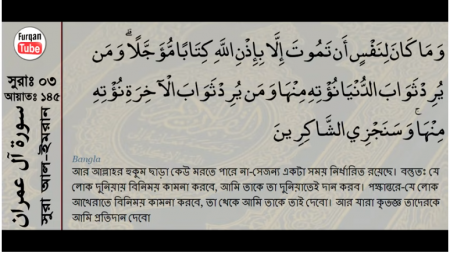 Furqan
Tube
সূরাঃ ০৩
আয়াতঃ ১৪৫
سورة آل عمران
সূরা আল-ইমরান
وَمَا كَانَ لِنَفْسٍ أَن تَمُوتَ إِلَّا بِإِذْنِ اللَّهِ كِتَابًا مُّؤَجَّلًا ۗ وَمَن
يُرِدْ ثَوَابَ الدُّنْيَا نُؤْتِهِ مِنْهَا وَمَن يُرِدْ ثَوَابَ الْآخِرَةِ نُؤْتِهِ
مِنْهَا ۚ وَسَنَجْزِي الشَّاكِرِينَ
Bangla
আর আল্লাহর হুকুম ছাড়া কেউ মরতে পারে না-সেজন্য একটা সময় নির্ধারিত রয়েছে। বস্তুতঃ যে
লোক দুনিয়ায় বিনিময় কামনা করবে, আমি তাকে তা দুনিয়াতেই দান করব। পক্ষান্তরে-যে লোক
আখেরাতে বিনিময় কামনা করবে, তা থেকে আমি তাকে তাই দেবো। আর যারা কৃতজ্ঞ তাদেরকে
আমি প্রতিদান দেবো